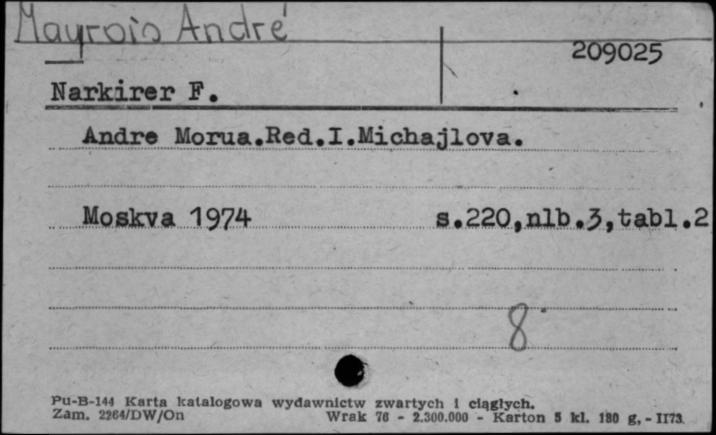 Mayrois André
209025
Narkirer F.
Andre Morua.Red.I.Michajlova.
Moskva 1974 s.220,nlb.3,tabl.2
8
Pu-B-144 Karta katalogowa wydawnictw zwartych i ciągłych.
Zam. 2264/DW/On Wrak 76 - 2.300.000 - Karton 5 kl. 180 g, - II73.